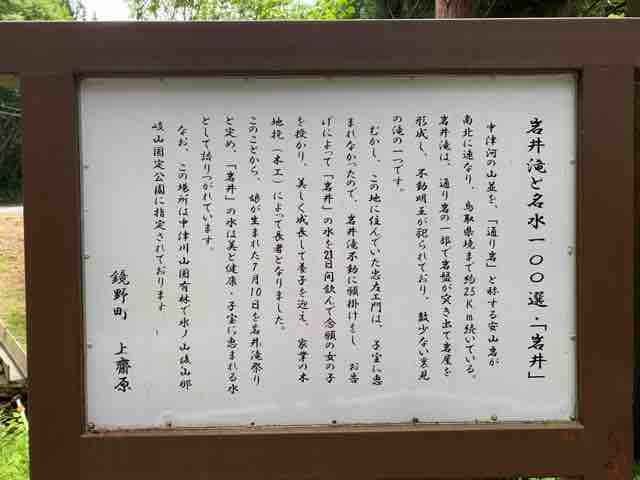 岩井滝と名水一〇〇選・「岩井」
中津河の山並を、「通り岩」と称する安山岩が
南北に連なり、鳥取県境まで約25Km続いている。
岩井滝は、通り岩の一部で岩盤が突き出て岩屋を
形成し、不動明王が祀られており、数少ない裏見
の滝の一つです。
むかし、この地に住んでいた忠左エ門は、子宝に恵
まれなかったので、岩井滝不動に願掛けをし、お告
げによって「岩井」の水を21日間飲んで念願の女の子
を授かり、美しく成長して養子を迎え、家業の木
地挽(木工)によって長者となりました。
このことから、娘が生まれた7月10日を岩井滝祭り
と定め、「岩井」の水は美と健康・子宝に恵まれる水
として語りつがれています。
なお、この場所は中津川山国有林で氷ノ山後山那
岐山国定公園に指定されております
鏡野町 上齋原